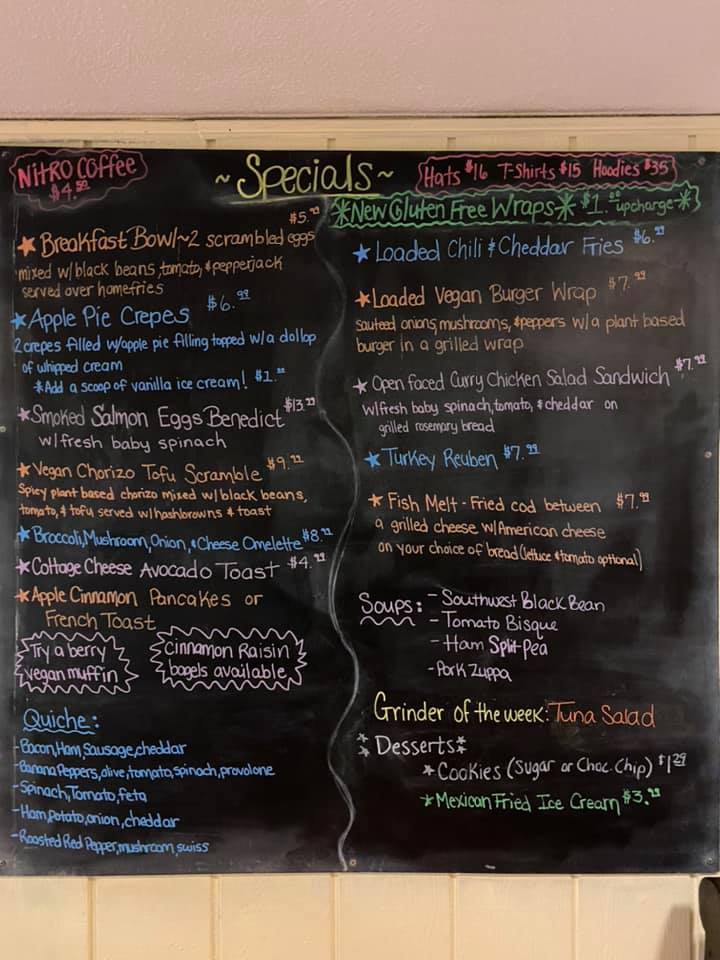 Nitro Coffee
$4.50
~Specials~
Hats $16 T-Shirts $15 Hoodies $35
*New Gluten Free Wraps* $1.00 upcharge*
$5.99
Breakfast Bowl~2 scrambled eggs
mixed w/black beans, tomato, & pepperjack
served over homefries
Apple Pie Crepes $6.99
2 crepes filled w/apple pie filling topped w/a dollop
of whipped cream
*Add a scoop of vanilla ice cream! $1.00
Smoked Salmon Eggs Benedict $13.99
w/fresh baby spinach
Vegan Chorizo Tofu Scramble $9.99
Spicy plant based chorizo mixed w/black beans,
tomato, & tofu served w/hashbrowns & toast
Broccoli, Mushroom, Onion, & Cheese Omelette $8.99
Cottage Cheese Avocado Toast $4.99
Apple Cinnamon Pancakes or
French Toast
Try a berry
vegan muffin
Cinnamon Raisin
bagels available
Quiche:
-Bacon, Ham, Sausage, cheddar
-Banana Peppers, olive, tomato, spinach, provolone
-Spinach, Tomato, feta
-Ham, potato, onion, cheddar
-Roasted Red Pepper, mushroom, swiss
Loaded Chili & Cheddar Fries $6.99
Loaded Vegan Burger Wrap $7.99
sauteed onions, mushrooms, & peppers w/a plant based
burger in a grilled wrap
Open faced Curry Chicken Salad Sandwich $7.99
w/fresh baby spinach, tomato, & cheddar on
grilled rosemary bread
Turkey Reuben $7.99
Fish Melt - Fried cod between $7.99
a grilled cheese w/American cheese
on your choice of bread (lettuce & tomato optional)
Soups: - Southwest Black Bean
- Tomato Bisque
- Ham Split Pea
- Pork Zuppa
Grinder of the week: Tuna Salad
Desserts
*Cookies (Sugar or Choc. Chip) $1.29
*Mexican Fried Ice Cream $3.99